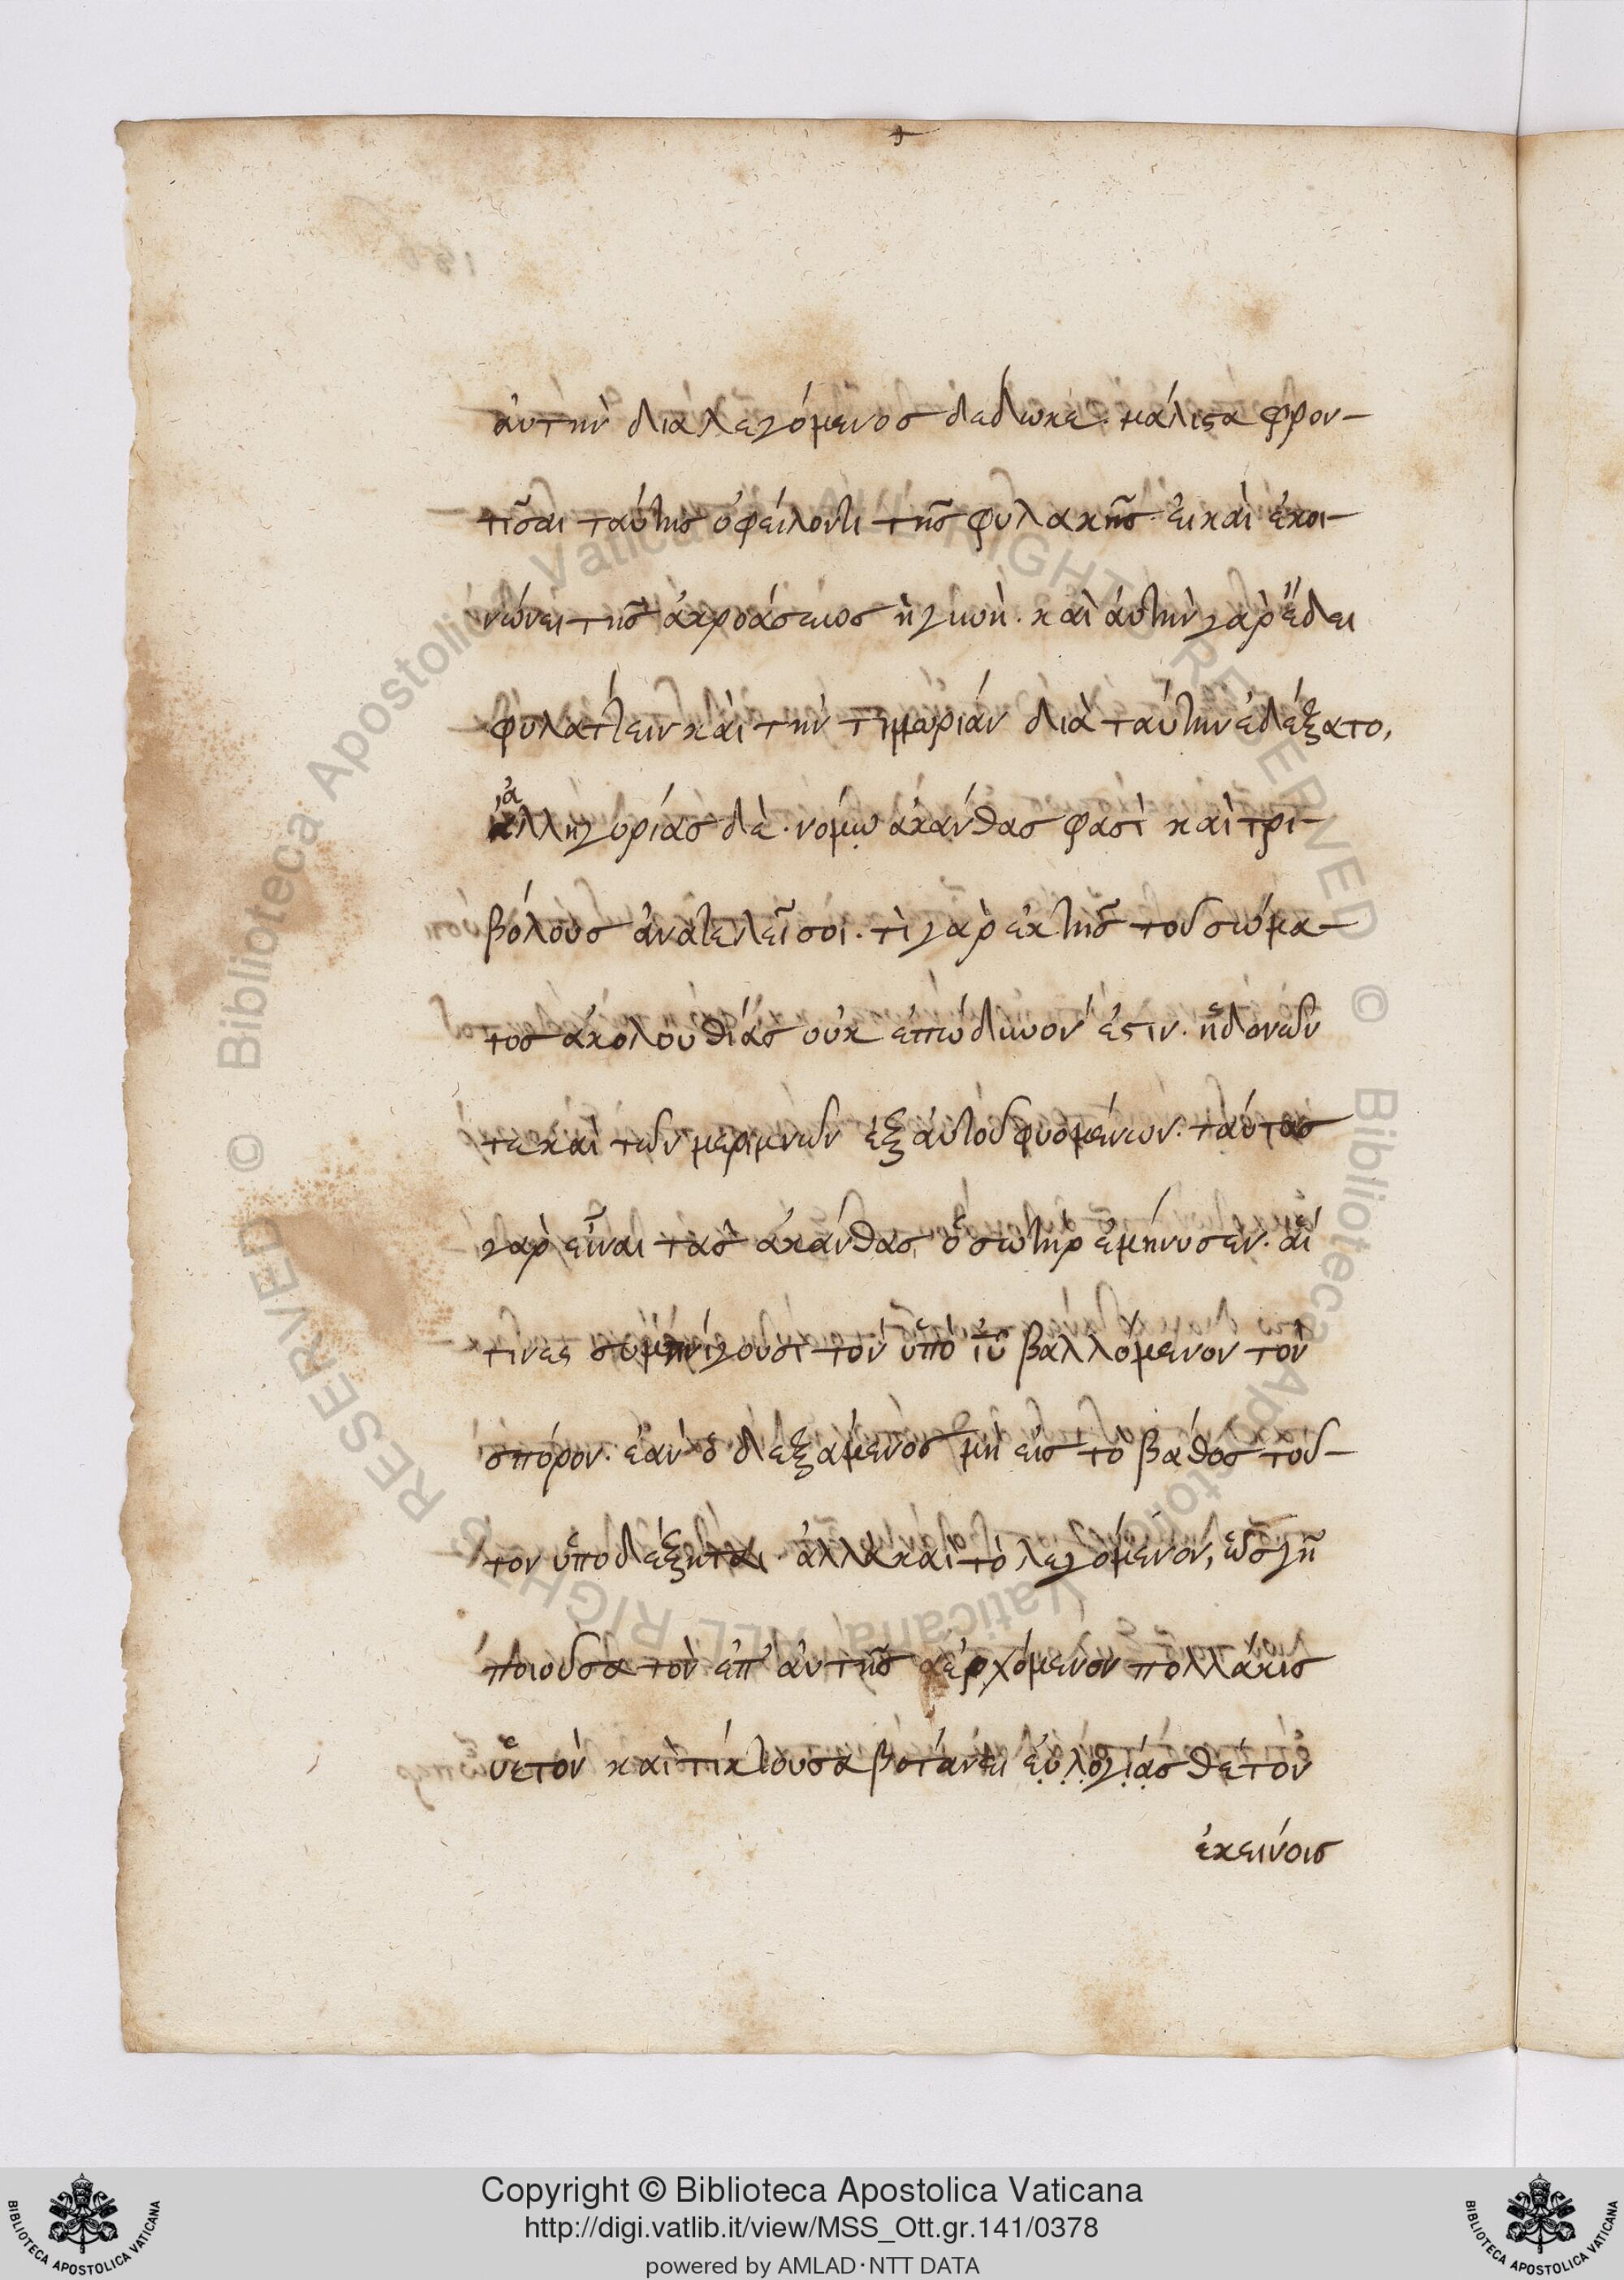 ἀυτὴν διαλεγόμενος δεδωκέ. μάλιϛα φρον-
τῖσαι ταύτης ὀφείλοντι τῆς φυλακῆς. ἐι καὶ ἐκοι-
νώνει τῆς ἀκροάσεως ἡ γυνὴ. καὶ ἀυτὴν γὰρ ἔδει
φυλάττειν καὶ τὴν τιμωρίαν διὰ ταύτην ἐδέξατο,
ἀλληγορίας δὲ. νόμω ἀκάνθας φασὶ καὶ τρι-
βόλους ἀνατελεῖ σοι. τὶ γὰρ ἐκ τῆς τοῦ σώμα-
τος ἀκολουθίας οὐκ ἐπώδυνον ἐϛιν. ἡδονῶν
τε καὶ τῶν μεριμνῶν ἐξ ἀυτοῦ φυομένων. ταύτας
γὰρ εἶναι τὰς ἀκάνθας, ὁ σωτὴρ ἐμήνυσεν. αἵ
τινες συμπνίγουσι τὸν ὑπὸ ἰῦ βαλλόμενον τὸν
σπόρον. ἐὰν ὁ δεξάμενος μὴ εἰς τὸ βάθος τοῦ-
τον ὑποδέξηται. ἀλλὰ καὶ τὸ λεγόμενον, ὡς γῆ
πιοῦσα τὸν ἐπ' ἀυτῆς ἐρχόμενον πολλάκις
ὑετὸν καὶ τίκτουσα βοτάνην εὐλογίας θετὸν
ἐκεινοις
Copyright © Biblioteca Apostolica Vaticana
http://digi.vatlib.it/view/MSS_Ott.gr.141/0378
powered by AMLAD·NTT DATA